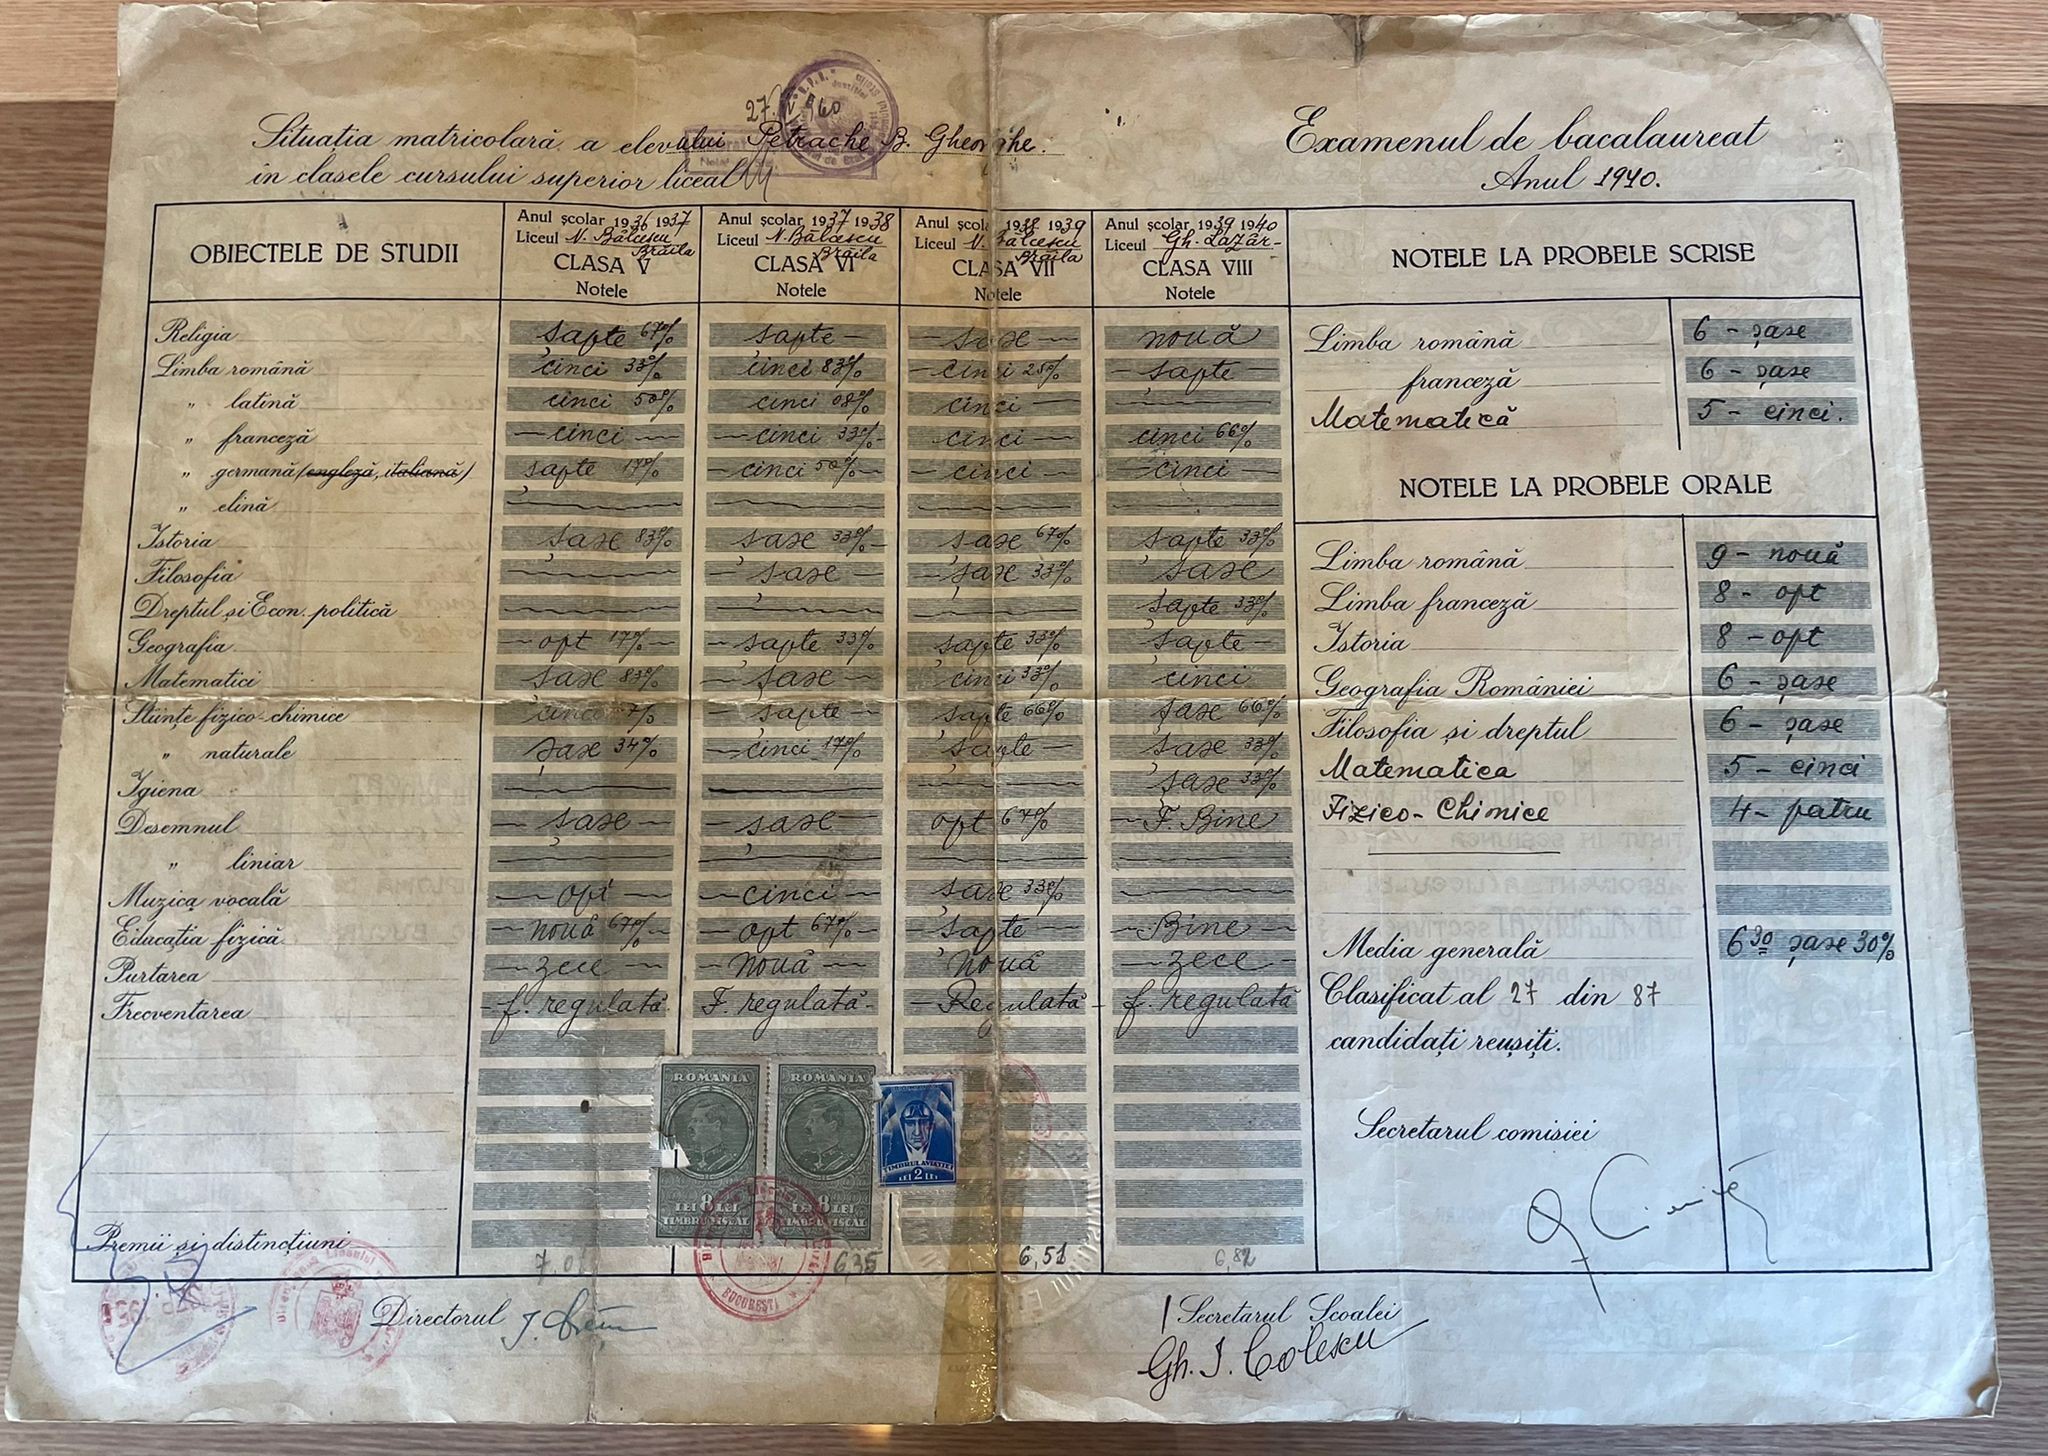 27. 960
Situația matricolară a elevului Petrache B. Gheorghe.
în clasele cursului superior liceal
Examenul de bacalaureat
Anul 1940.
OBIECTELE DE STUDII
Anul școlar 1936 1937
Liceul N. Bălcescu
Brăila
CLASA V
Notele
Anul școlar 1937 1938
Liceul N. Bălcescu
Brăila
CLASA VI
Notele
Anul școlar 1938 1939
Liceul N. Bălcescu
Brăila
CLASA VII
Notele
Anul școlar 1939 1940
Liceul Gh. Lazăr
CLASA VIII
Notele
Religia șapte 67% șapte șase nouă
Limba română cinci 33% cinci 83% cinci 25% șapte
" latină cinci 50% cinci 08% cinci
" franceză cinci cinci 33% cinci cinci 66%
" germană (engleză, italiană) șapte 17% cinci 50% cinci cinci
" elină
Istoria șase 83% șase 33% șase 67% șapte 33%
Filosofia șase șase 33% șase
Dreptul și Econ. politică șapte 33%
Geografia opt 17% șapte 33% șapte 33% șapte
Matematici șase 83% șase cinci 33% cinci
Științe fizico-chimice cinci șapte șapte 66% șase 66%
" naturale șase 34% cinci 17% șapte șase 33%
Igiena șase 33%
Desemnul șase șase opt 67% F. Bine
" liniar
Muzica vocală opt cinci șase 33%
Educația fizică nouă 67% opt 67% șapte Bine
Purtarea zece nouă nouă zece
Frecventarea f. regulată F. regulată Regulată f. regulată
Premii și distincțiuni
6,35 6,51 6,82
NOTELE LA PROBELE SCRISE
Limba română 6 - șase
franceză 6 - șase
Matematică 5 - cinci.
NOTELE LA PROBELE ORALE
Limba română 9 - nouă
Limba franceză 8 - opt
Istoria 8 - opt
Geografia României 6 - șase
Filosofia și dreptul 6 - șase
Matematica 5 - cinci
Fizico-Chimice 4 - patru
Media generală 6 30 șase 30%
Clasificat al 27 din 87
candidați reușiți.
Secretarul comisiei
ROMANIA
8 LEI 8
TIMBRU FISCAL
ROMANIA
LEI 8 LEI
TIMBRU FISCAL
TIMBRUL AVIAȚIEI
LEI 2 LEI
BUCUREȘTI
Directorul
Secretarul Școalei
Gh. I. Colescu